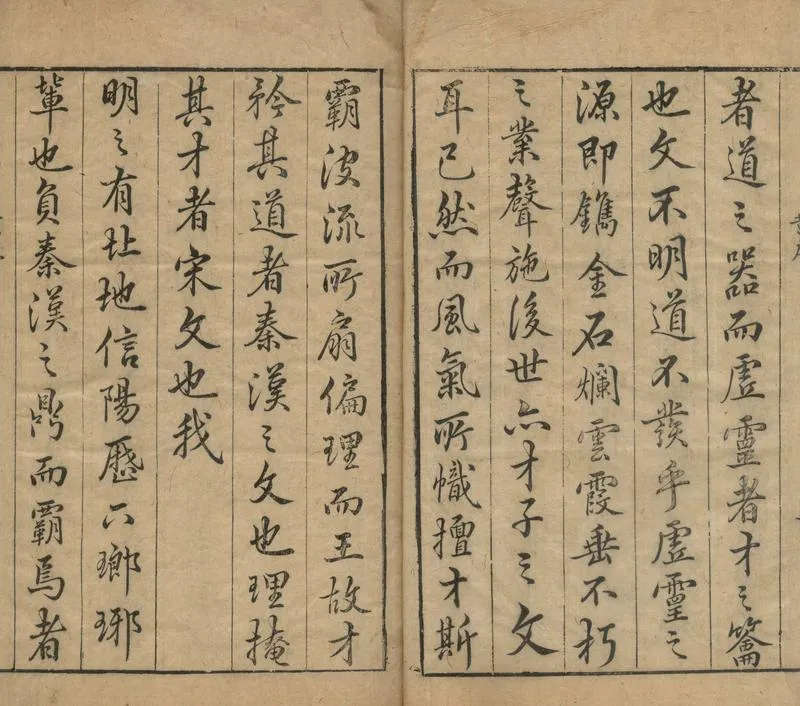 者道之器而虛靈者才之籥
也文不明道不發乎虛靈之
源即鐫金石爛雲霞垂不朽
之業聲施後世亦才子之文
耳已然而風氣所幟擅才斯
霸波流所扇偏理而王故才
矜其道者秦漢之文也理掩
其才者宋文也我
明之有北地信陽歷下瑯琊
輩也負秦漢之鼎而霸焉者